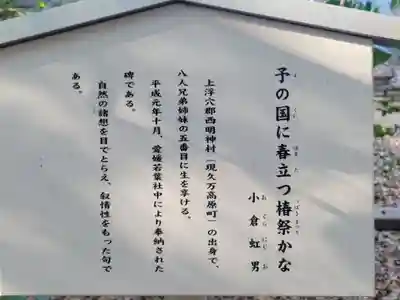 予の国に春立つ椿祭かな
よ くに はる た つばきまつり
小倉虹男
おぐらにじお
上浮穴郡西明神村(現久万高原町)の出身で、
八人兄弟姉妹の五番目に生を享ける。
平成元年十月、愛媛若葉社中により奉納された
碑である。
自然の諸想を目でとらえ、叙情性をもった句で
ある。